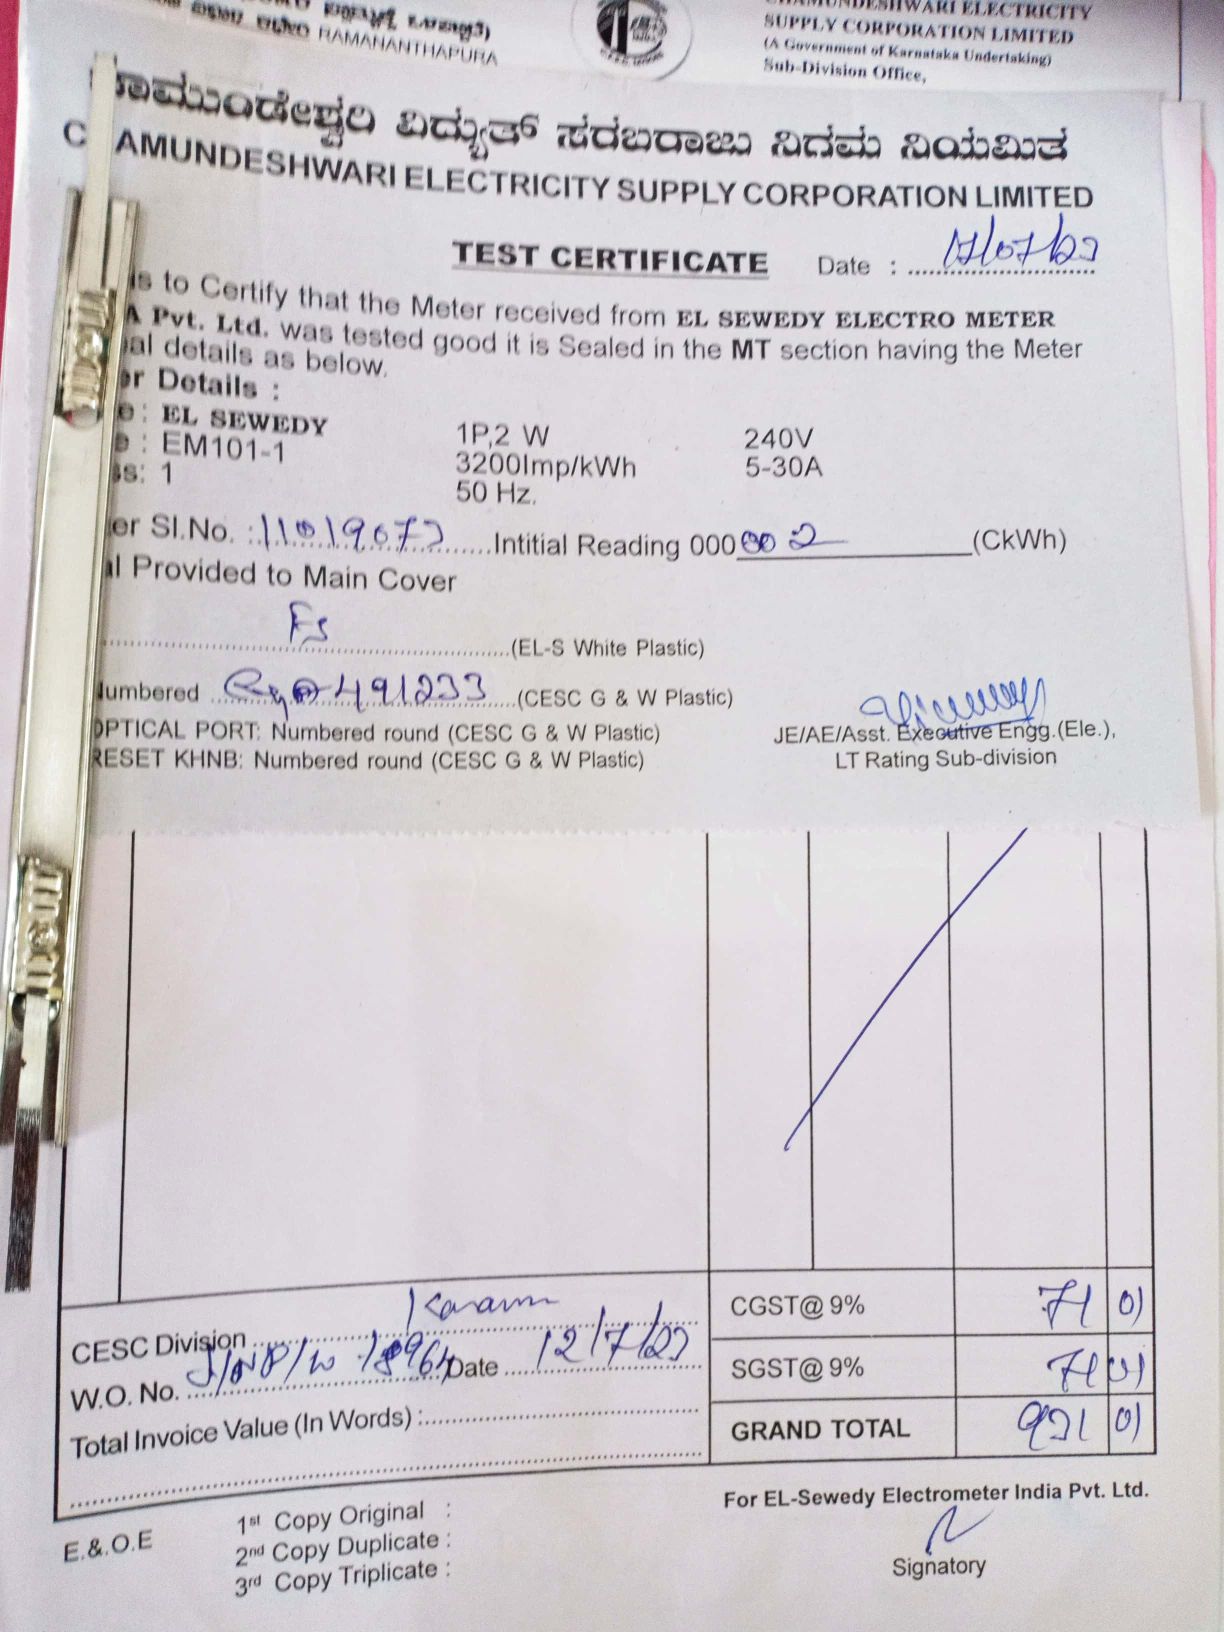 RAMANANTHAPURA
SUPPLY CORPORATION LIMITED
(A Government of Karnataka Undertaking)
Sub-Division Office,
ಚಾಮುಂಡೇಶ್ವರಿ ವಿದ್ಯುತ್ ಸರಬರಾಜು ನಿಗಮ ನಿಯಮಿತ
CHAMUNDESHWARI ELECTRICITY SUPPLY CORPORATION LIMITED
TEST CERTIFICATE Date : 17/07/23
is to Certify that the Meter received from EL SEWEDY ELECTRO METER
A Pvt. Ltd. was tested good it is Sealed in the MT section having the Meter
al details as below.
er Details :
e : EL SEWEDY 1P,2 W 240V
e : EM101-1 3200Imp/kWh 5-30A
ss: 1 50 Hz.
er Sl.No. : 11019673 Intitial Reading 000 002 (CkWh)
al Provided to Main Cover
(EL-S White Plastic)
Numbered 491233 (CESC G & W Plastic)
OPTICAL PORT: Numbered round (CESC G & W Plastic) JE/AE/Asst. Executive Engg.(Ele.),
RESET KHNB: Numbered round (CESC G & W Plastic) LT Rating Sub-division
CGST@ 9% 71 01
CESC Division
W.O. No. Date 12/7/23
SGST@ 9% 71 01
Total Invoice Value (In Words) :
GRAND TOTAL 931 01
For EL-Sewedy Electrometer India Pvt. Ltd.
E.&.O.E 1st Copy Original :
2nd Copy Duplicate :
3rd Copy Triplicate :
Signatory